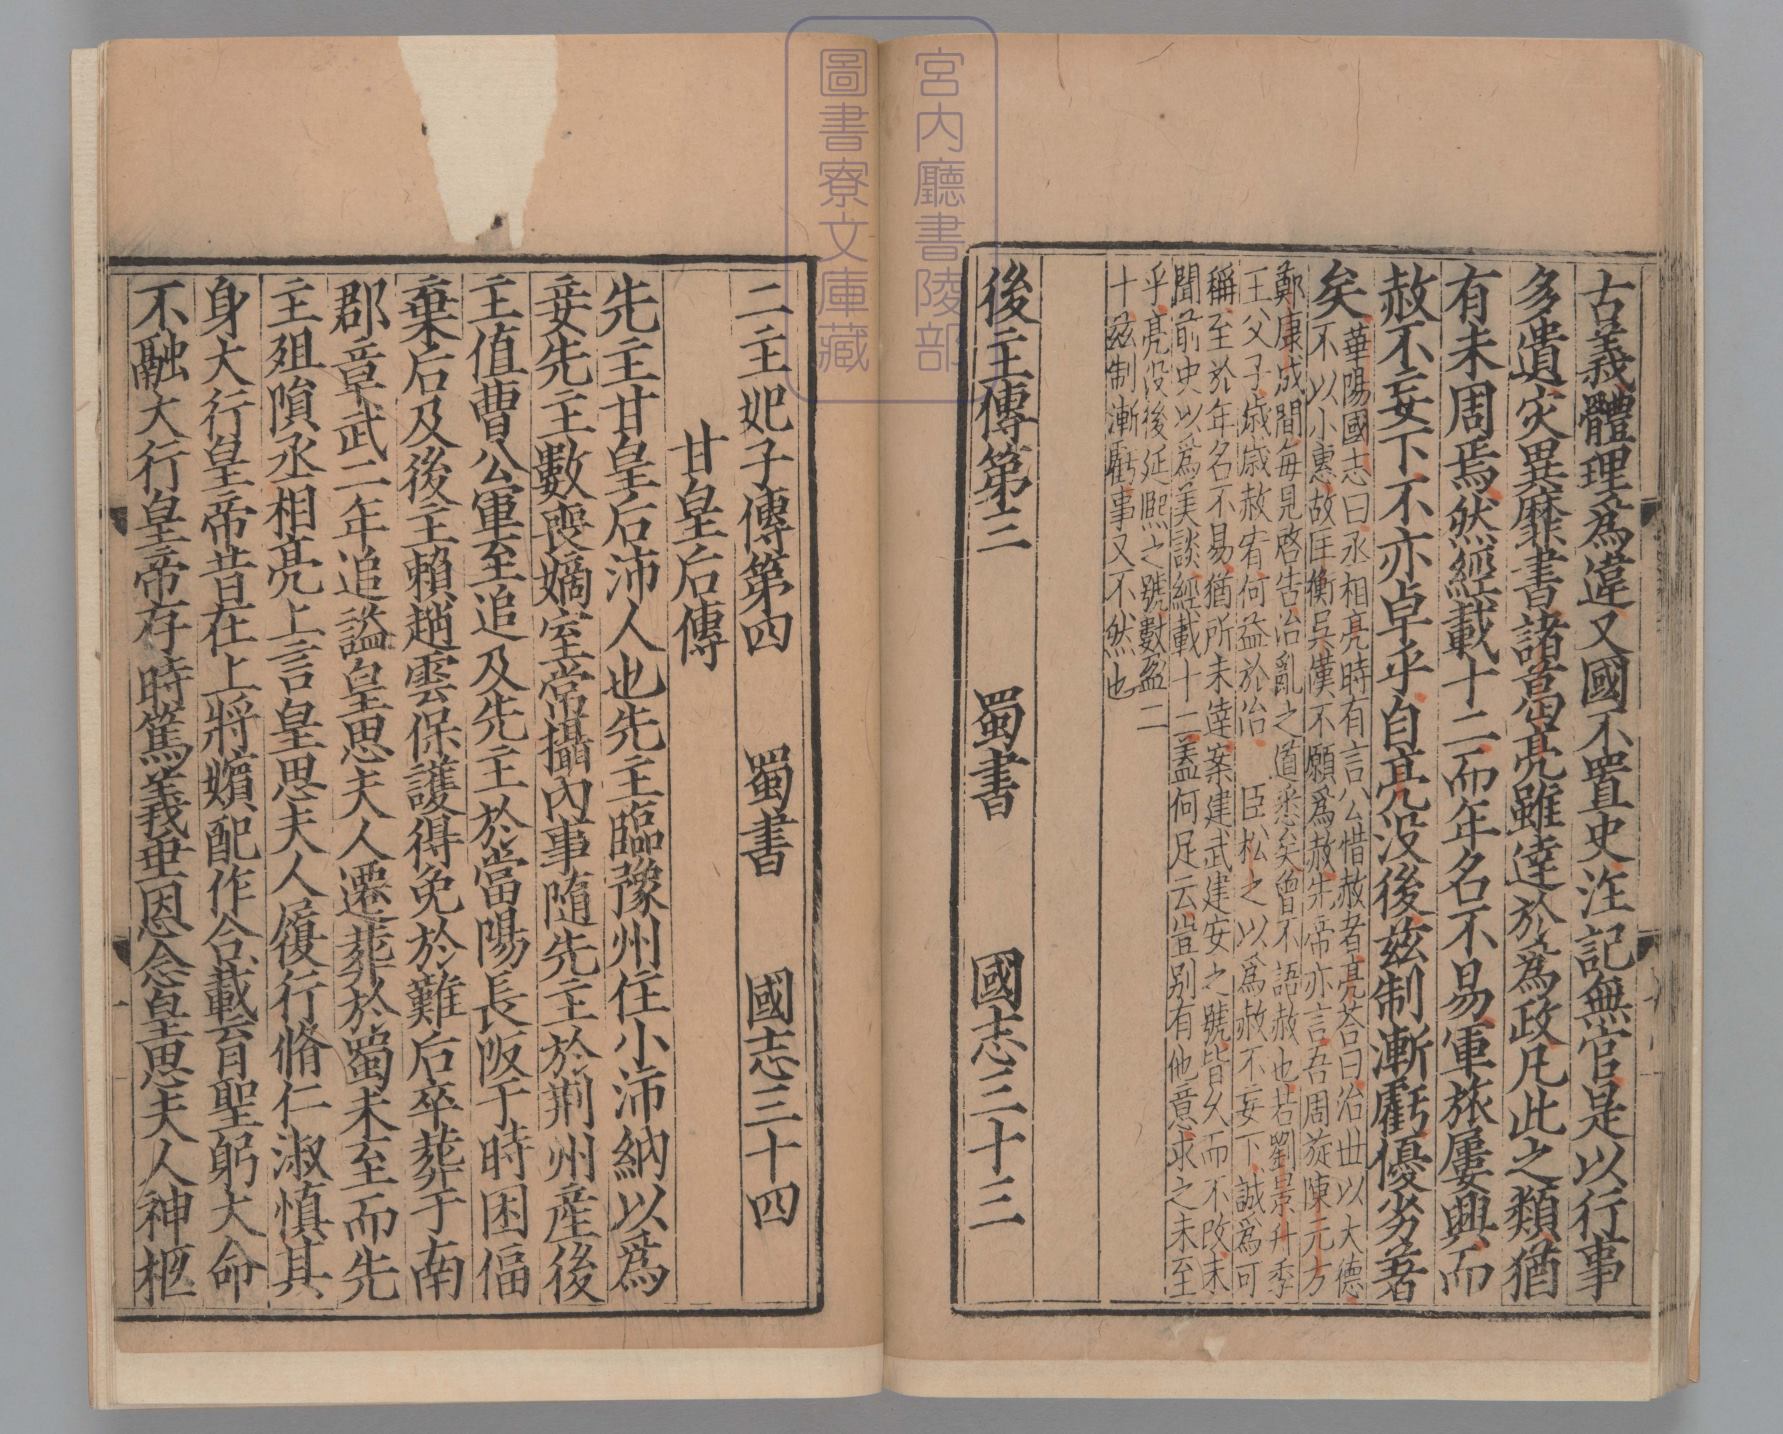 古義體理爲違又國不置史注記無官是以行事
多遺灾異靡書諸葛亮雖達於爲政凡此之類猶
有未周焉然經載十二而年名不易軍旅屢興而
赦不妄下不亦卓乎自亮没後兹制漸虧優劣著
矣
華陽國志曰丞相亮時有言公惜赦者亮荅曰治世以大德
不以小惠故匡衡吳漢不願爲赦先帝亦言吾周旋陳元方
鄭康成間每見啓告治亂之道悉矣曾不語赦也若劉景升季
王父子歲歲赦宥何益於治 臣松之以爲赦不妄下誠爲可
稱至於年名不易猶所未達案建武建安之號皆久而不改未
聞前史以爲美談經載十二蓋何足云豈别有他意求之未至
乎亮没後延熙之號數盈二
十兹制漸虧事又不然也
後主傳第三 蜀書 國志三十三
宮内廳書陵部
圖書寮文庫藏
二主妃子傳第四 蜀書 國志三十四
甘皇后傳
先主甘皇后沛人也先主臨豫州住小沛納以爲
妾先主數喪嫡室常攝內事隨先主於荊州產後
主值曹公軍至追及先主於當陽長阪于時困偪
棄后及後主賴趙雲保護得免於難后卒葬于南
郡章武二年追謚皇思夫人遷葬於蜀未至而先
主殂隕丞相亮上言皇思夫人履行脩仁淑慎其
身大行皇帝昔在上將嬪配作合載育聖躬大命
不融大行皇帝存時篤義垂恩念皇思夫人神柩